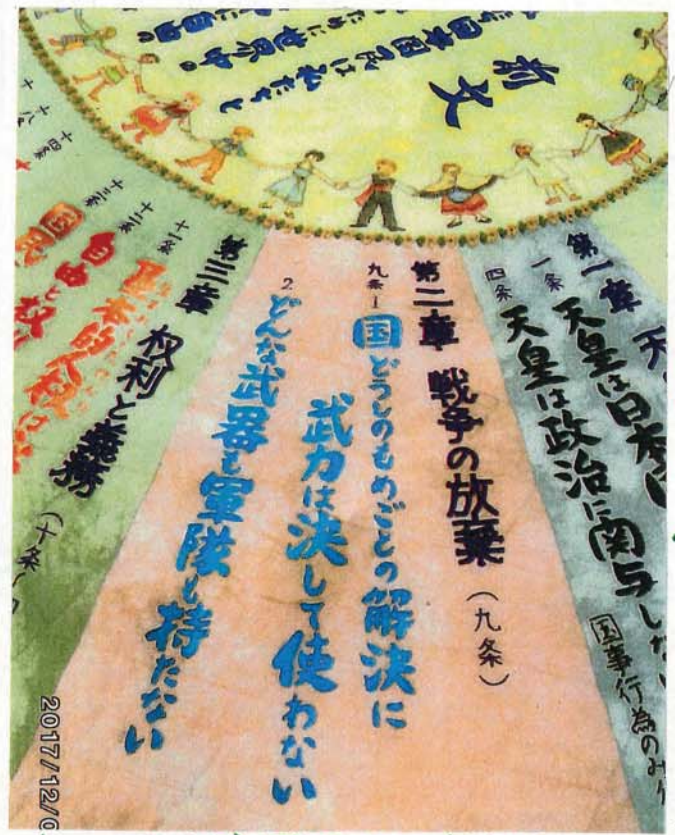 前文
日本国民は私たちと
ために世界中の
に自由の
第一章 天
一条 天皇は日本
四条 天皇は政治に関与しない
国事行為のみ
第二章 戦争の放棄(九条)
九条1 国どうしのもめごとの解決に
武力は決して使わない
2. どんな武器も軍隊も持たない
第三章 権利と義務(十条〜
十一条 基本的人権は
十二条 自由と権利
十三条 国民
十四条
十八条
十
2017/12/0